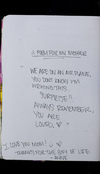 A POEM FOR MY MOTHER
WE ARE ON AN AIRPLANE,
YOU DON'T KNOW I'M
WRITING THIS
"SURPRISE"!
ALWAYS REMEMBER,
YOU ARE
LOVED. ♥
I LOVE YOU MOM!
THANKS FOR THE GIFT OF LIFE